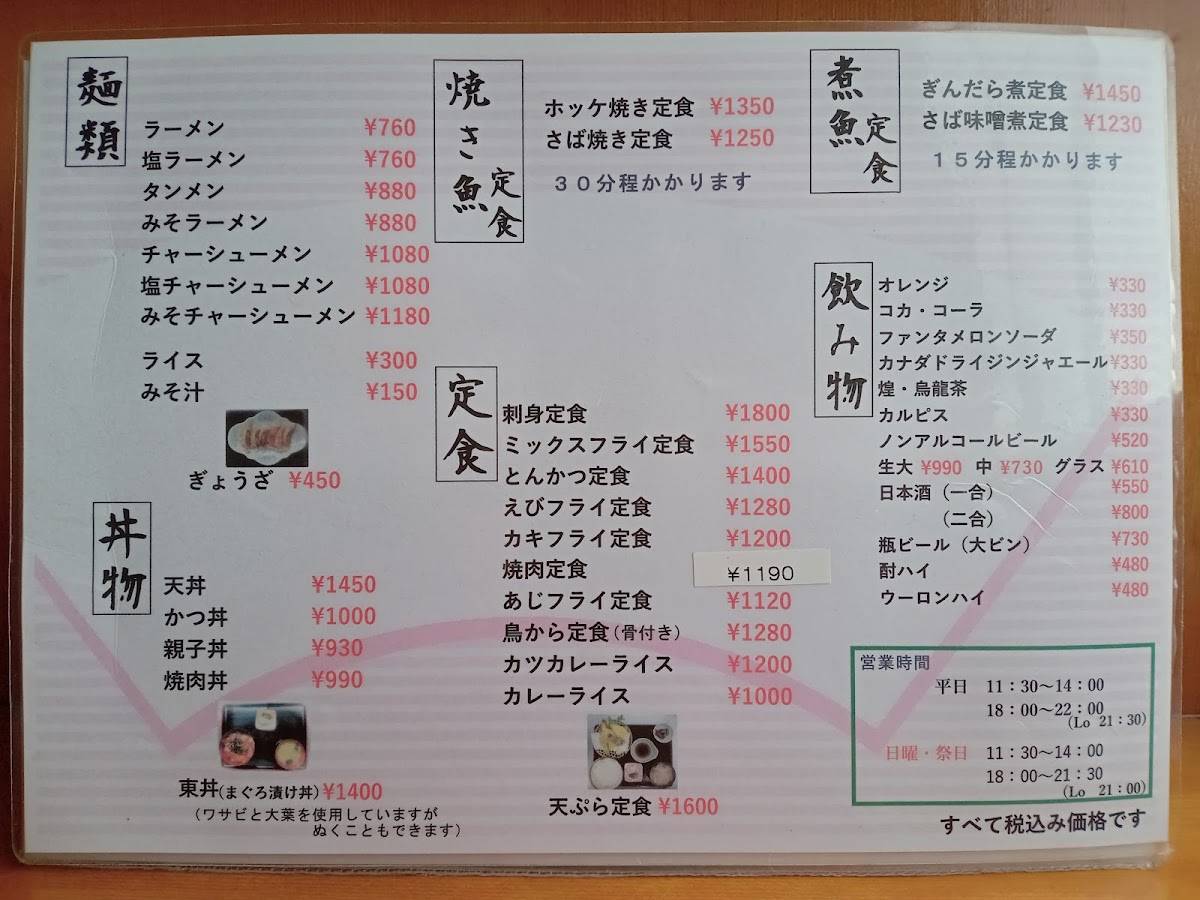 麺類
ラーメン ¥760
塩ラーメン ¥760
タンメン ¥880
みそラーメン ¥880
チャーシューメン ¥1080
塩チャーシューメン ¥1080
みそチャーシューメン ¥1180
ライス ¥300
みそ汁 ¥150
ぎょうざ ¥450
丼物
天丼 ¥1450
かつ丼 ¥1000
親子丼 ¥930
焼肉丼 ¥990
東丼(まぐろ漬け丼) ¥1400
(ワサビと大葉を使用していますが
ぬくこともできます)
焼き魚定食
ホッケ焼き定食 ¥1350
さば焼き定食 ¥1250
30分程かかります
定食
刺身定食 ¥1800
ミックスフライ定食 ¥1550
とんかつ定食 ¥1400
えびフライ定食 ¥1280
カキフライ定食 ¥1200
焼肉定食 ¥1190
あじフライ定食 ¥1120
鳥から定食(骨付き) ¥1280
カツカレーライス ¥1200
カレーライス ¥1000
天ぷら定食 ¥1600
煮魚定食
ぎんだら煮定食 ¥1450
さば味噌煮定食 ¥1230
15分程かかります
飲み物
オレンジ ¥330
コカ・コーラ ¥330
ファンタメロンソーダ ¥350
カナダドライジンジャエール ¥330
煌・烏龍茶 ¥330
カルピス ¥330
ノンアルコールビール ¥520
生大 ¥990 中 ¥730 グラス ¥610
日本酒(一合) ¥550
(二合) ¥800
瓶ビール(大ビン) ¥730
酎ハイ ¥480
ウーロンハイ ¥480
営業時間
平日 11:30〜14:00
18:00〜22:00
(Lo 21:30)
日曜・祭日 11:30〜14:00
18:00〜21:30
(Lo 21:00)
すべて税込み価格です